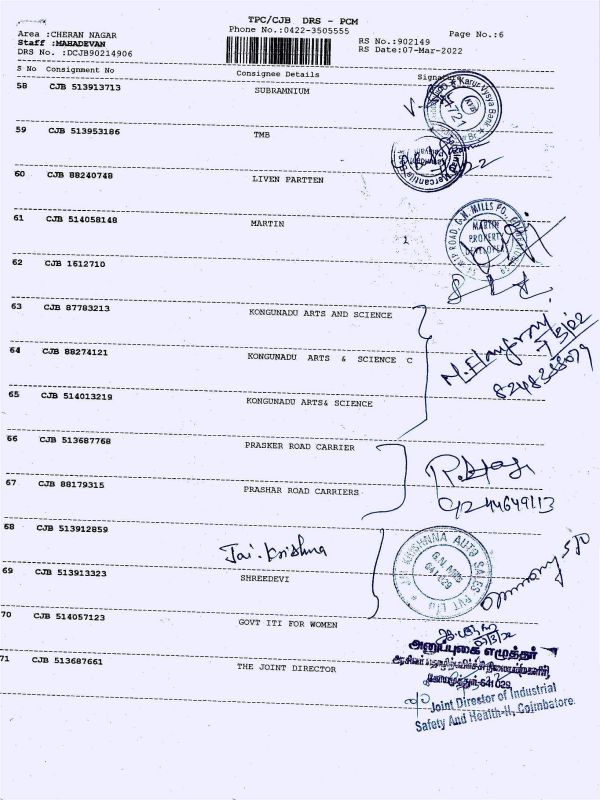 TPC/CJB DRS - PCM
Area :CHERAN NAGAR
Phone No.:0422-3505555
Page No.:6
Staff :MAHADEVAN
RS No.:902149
DRS No. :DCJB90214906
RS Date:07-Mar-2022
S No Consignment No Consignee Details
58 CJB 513913713 SUBRAMNIUM
Karur Vysya Bank
4721
59 CJB 513953186 TMB
60 CJB 88240748 LIVEN PARTTEN
61 CJB 514058148 MARTIN
MARTIN
PROPERTY
DEVELOPERS
62 CJB 1612710
63 CJB 87783213 KONGUNADU ARTS AND SCIENCE
64 CJB 88274121 KONGUNADU ARTS & SCIENCE C
65 CJB 514013219 KONGUNADU ARTS& SCIENCE
66 CJB 513687768 PRASKER ROAD CARRIER
67 CJB 88179315 PRASHAR ROAD CARRIERS
68 CJB 513912859
Jai.Krishna
JAI KRISHNAA AUTO SALES PVT LTD
G.N Mills
641 029
69 CJB 513913323 SHREEDEVI
70 CJB 514057123 GOVT ITI FOR WOMEN
அனுப்புகை எழுத்தர்
641 029
71 CJB 513687661 THE JOINT DIRECTOR
Joint Director of Industrial
Safety And Health-II, Coimbatore.